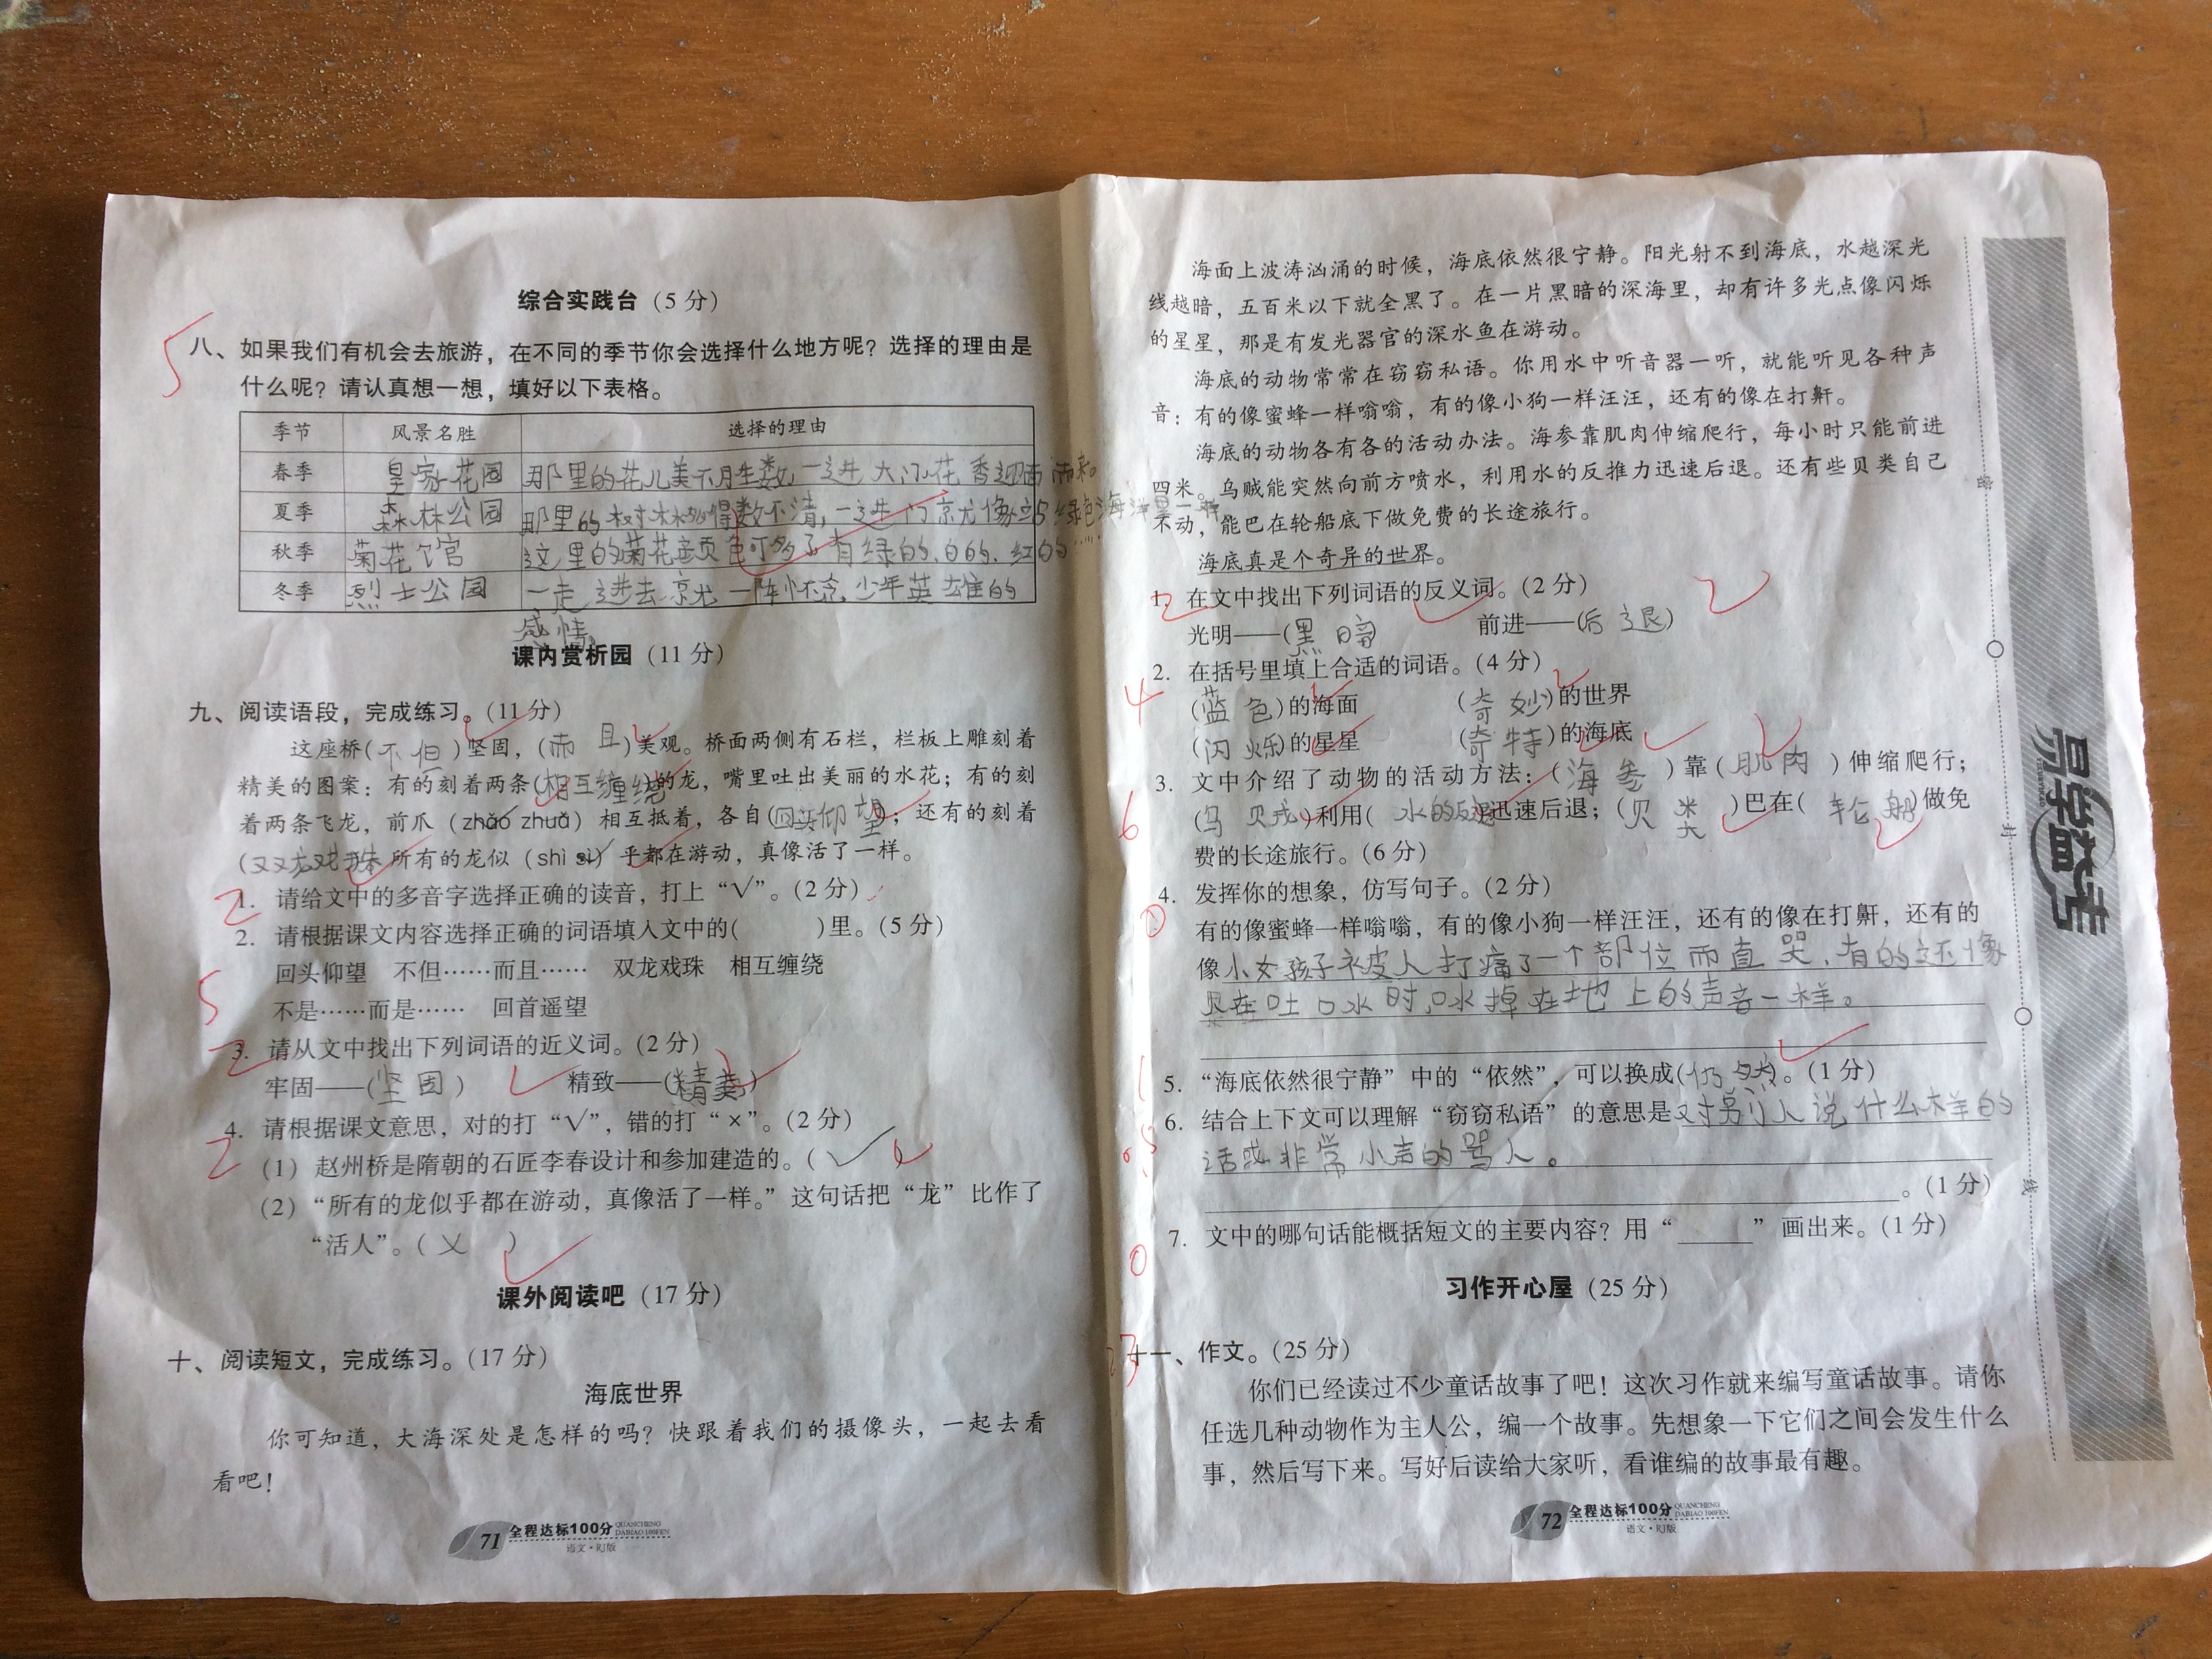 综合实践台（5 分）
5
八、如果我们有机会去旅游，在不同的季节你会选择什么地方呢？选择的理由是
什么呢？请认真想一想，填好以下表格。
季节 风景名胜 选择的理由
春季 皇家花园 那里的花儿美不胜数，一进大门花香迎面而来。
夏季 森林公园 那里的树木多得数不清，一进门就像与绿色海洋里一样
秋季 菊花馆 这里的菊花颜色可多了有绿的、白的、红的……
冬季 烈士公园 一走进去就一阵怀念少年英雄的
感情。
课内赏析园（11 分）
九、阅读语段，完成练习。（11 分）
这座桥(不但)坚固，(而且)美观。桥面两侧有石栏，栏板上雕刻着
精美的图案：有的刻着两条(相互缠绕)的龙，嘴里吐出美丽的水花；有的刻
着两条飞龙，前爪（zhǎo zhuǎ）相互抵着，各自(回头仰望)；还有的刻着
(双龙戏珠 所有的龙似（shì sì）乎都在游动，真像活了一样。
2 1. 请给文中的多音字选择正确的读音，打上“√”。（2 分）
2. 请根据课文内容选择正确的词语填入文中的( )里。（5 分）
回头仰望 不但……而且…… 双龙戏珠 相互缠绕
5
不是……而是…… 回首遥望
2 3. 请从文中找出下列词语的近义词。（2 分）
牢固——(坚固) 精致——(精美)
4. 请根据课文意思，对的打“√”，错的打“×”。（2 分）
2 （1）赵州桥是隋朝的石匠李春设计和参加建造的。(√
（2）“所有的龙似乎都在游动，真像活了一样。”这句话把“龙”比作了
“活人”。(×)
课外阅读吧（17 分）
十、阅读短文，完成练习。（17 分）
海底世界
你可知道，大海深处是怎样的吗？快跟着我们的摄像头，一起去看
看吧！
71 全程达标100分 QUANCHENG DABIAO 100FEN
语文·RJ版
海面上波涛汹涌的时候，海底依然很宁静。阳光射不到海底，水越深光
线越暗，五百米以下就全黑了。在一片黑暗的深海里，却有许多光点像闪烁
的星星，那是有发光器官的深水鱼在游动。
海底的动物常常在窃窃私语。你用水中听音器一听，就能听见各种声
音：有的像蜜蜂一样嗡嗡，有的像小狗一样汪汪，还有的像在打鼾。
海底的动物各有各的活动办法。海参靠肌肉伸缩爬行，每小时只能前进
四米。乌贼能突然向前方喷水，利用水的反推力迅速后退。还有些贝类自己
不动，能巴在轮船底下做免费的长途旅行。
海底真是个奇异的世界。
2 1. 在文中找出下列词语的反义词。（2 分） 2
光明——(黑暗) 前进——(后退)
2. 在括号里填上合适的词语。（4 分）
4 (蓝色)的海面 (奇妙)的世界
(闪烁)的星星 (奇特)的海底
3. 文中介绍了动物的活动方法：(海参)靠(肌肉)伸缩爬行；
6 (乌贼)利用(水的反 迅速后退；(贝类)巴在(轮船)做免
费的长途旅行。（6 分）
4. 发挥你的想象，仿写句子。（2 分）
有的像蜜蜂一样嗡嗡，有的像小狗一样汪汪，还有的像在打鼾，还有的
像小女孩子被人打痛了一个部位而直哭，有的还像
在吐口水时，口水掉在地上的声音一样。
1 5. “海底依然很宁静”中的“依然”，可以换成(仍然)。（1 分）
6. 结合上下文可以理解“窃窃私语”的意思是对别人说什么样的
0.5 话或非常小声的骂人。
。（1 分）
0 7. 文中的哪句话能概括短文的主要内容？用“______”画出来。（1 分）
习作开心屋（25 分）
十一、作文。（25 分）
你们已经读过不少童话故事了吧！这次习作就来编写童话故事。请你
任选几种动物作为主人公，编一个故事。先想象一下它们之间会发生什么
事，然后写下来。写好后读给大家听，看谁编的故事最有趣。
72 全程达标100分 QUANCHENG DABIAO 100FEN
语文·RJ版
密
封
线
易学益考